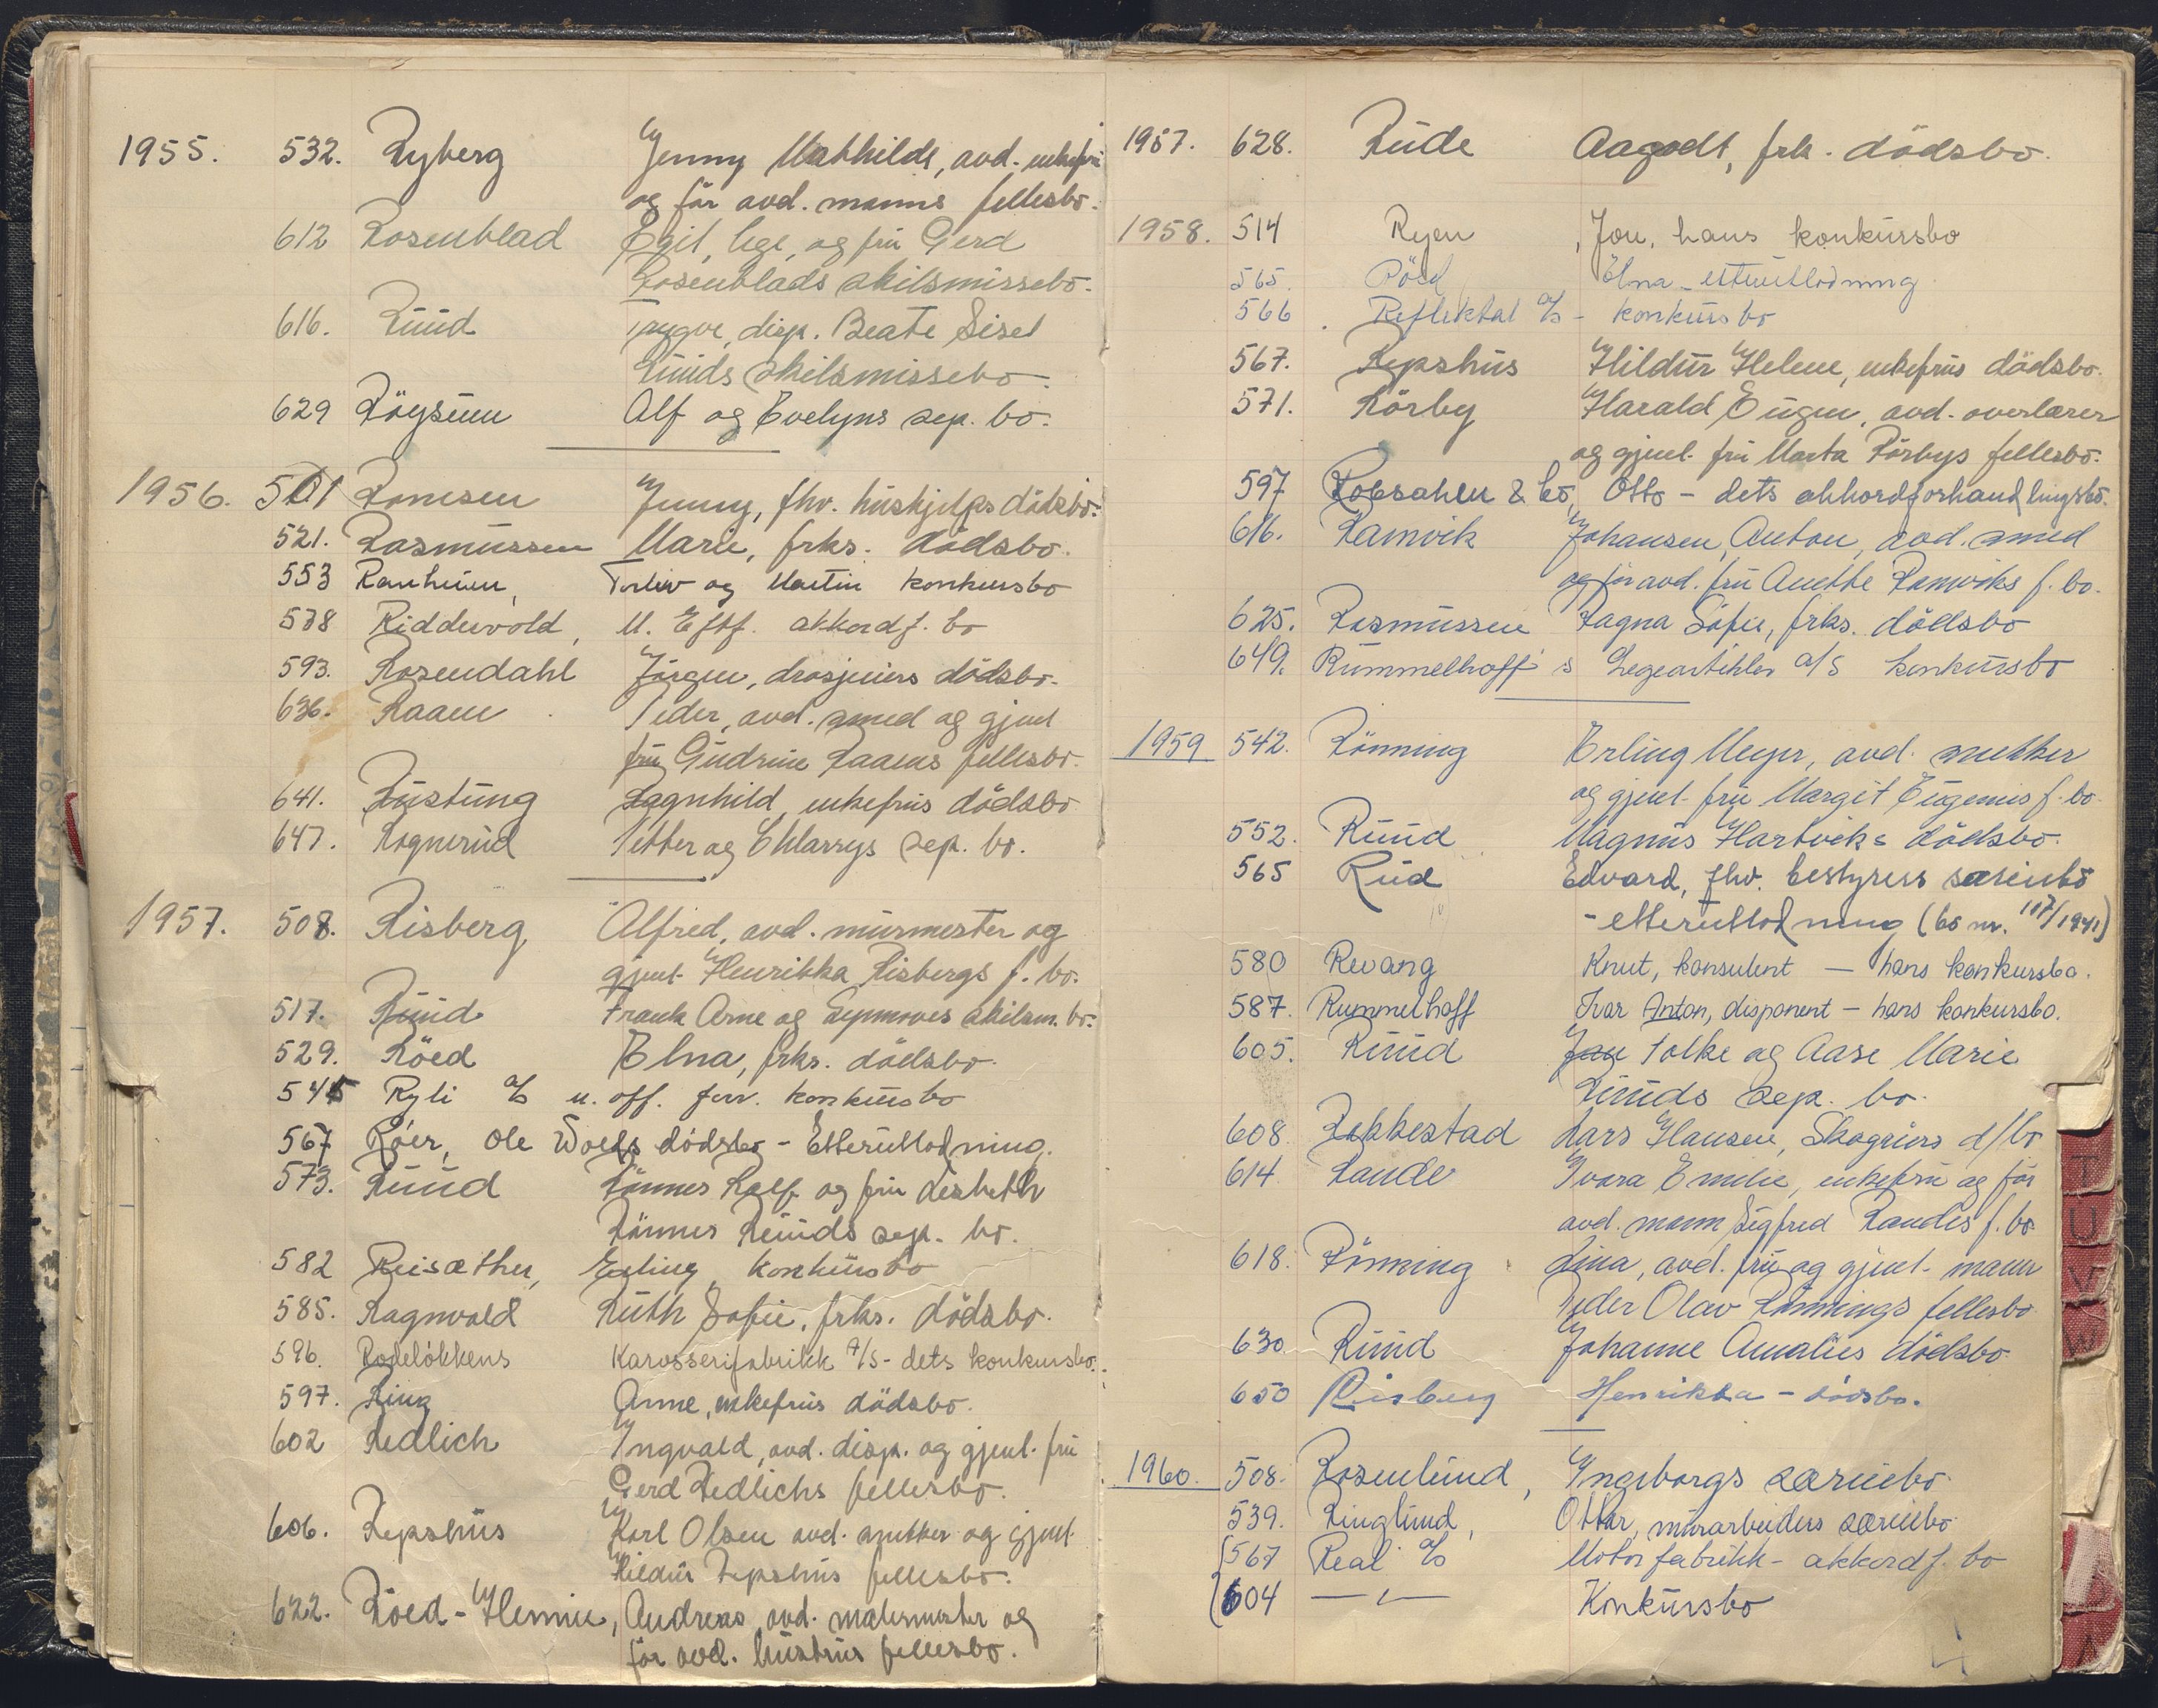 1955. 532. Ryberg Jenny Mathilde, avd. enkefru
og før avd. manns fellesbo.
612 Rosenblad Egil, lege, og fru Gerd
Rosenblads skilsmissebo.
616. Ruud Trygve, disp. Beate Sisel
Ruuds skilsmissebo.
629 Röysum Alf og Evelyns sep. bo.
1956. 501 Romsen Jenny, fhv. huskjelps dödsbo.
521. Rasmussen Marie, frks. dödsbo.
553 Ranheim, Torleiv og Martin konkursbo
578 Riddervold, M. Eftf. akkordf. bo
593. Rosendahl Jörgen, drosjeeiers dödsbo.
636. Raaen Peder, avd. smed og gjenl
fru Gudrun Raaens fellesbo.
641. Rustung Ragnhild, enkefrus dödsbo
647. Rognerud Petter og sep. bo.
1957. 508. Risberg Alfred, avd. murmester og
gjenl. Henrikka Risbergs f. bo.
517. Ruud Frank Arne og Synnöves skilsm. bo.
529. Röed Elna, frks. dödsbo.
545 Ryli A/S u. off. forv. konkursbo
567 Röer, Ole Wolds dödsbo - Etterutlodning.
573. Ruud Rönnes Rolf og fru Lisbeth
Rönnes Ruuds sep. bo.
582 Reisæther, Erling, konkursbo
585. Ragnvald Ruth Sofie, frks. dödsbo.
596. Rodeløkkens Karosserifabrikk A/S - dets konkursbo.
597. Ring Anne, enkefrus dödsbo.
602 Redlich Ingvald, avd. disp. og gjenl. fru
Gerd Redlichs fellesbo.
606. Repshus Karl Olsen avd. snekker og gjenl.
Hildur Repshus fellesbo.
622. Röed-Hennie, Andreas, avd. malermester og
før avd. hustrus fellesbo.
1957. 628. Rude Aagodt, frk. dödsbo.
1958. 514 Ryen, Jon, hans konkursbo
565. Röed Elna - etterutlodning
566. Reflektal A/S - konkursbo
567. Repshus Hildur Helene, enkefrus dödsbo.
571. Rörby Harald Eugen, avd. overlærer
og gjenl. fru Marta Rörbys fellesbo.
597 Robsahm & Co, Otto - dets akkordforhandlingsbo.
616. Ramvik Johansen, Anton, avd. smed
og før avd. fru Anethe Ramviks f. bo.
625. Rasmussen Ragna Sofie, frks. dödsbo
649. Rummelhoff's Legeartikler A/S konkursbo
1959 542. Rönning Erling Meyer, avd. snekker
og gjenl. fru Margit Eugenies f. bo.
552. Ruud Magnus Hartviks dödsbo.
565 Rud Edvard, fhv. bestyrers særeiebo
- etterutlodning (bo nr. 117/1941)
580 Revang Knut, konsulent — hans konkursbo.
587. Rummelhoff Ivar Anton, disponent - hans konkursbo.
605. Ruud Jan Tolke og Aase Marie
Ruuds sep. bo.
608. Rakkestad Lars Hansen, Skogeiers d/bo
614. Rande Ivara Emilie, enkefru og før
avd. mann, Sigfred Randes f. bo.
618. Rönning Lina, avd. fru og gjenl. mann
Peder Olav Rönnings fellesbo
630. Ruud Johanne Amalies dödsbo.
650 Risberg Henrikka - dödsbo.
1960. 508. Rosenlund, Ingeborgs særeiebo.
539. Ringlund, Ottar, murarbeiders særeiebo
567 Real A/S Motorfabrikk - akkordf. bo
604 — " — Konkursbo
T
U
V
W